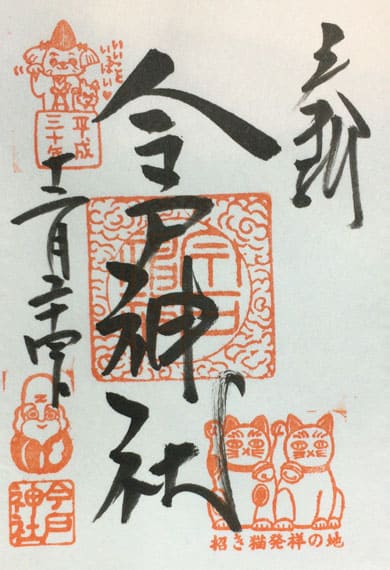 奉拝
今戸神社
いいこと
いっぱい♥
平成
三十年
十二月二十四日
今戸
神社
招き猫発祥の地